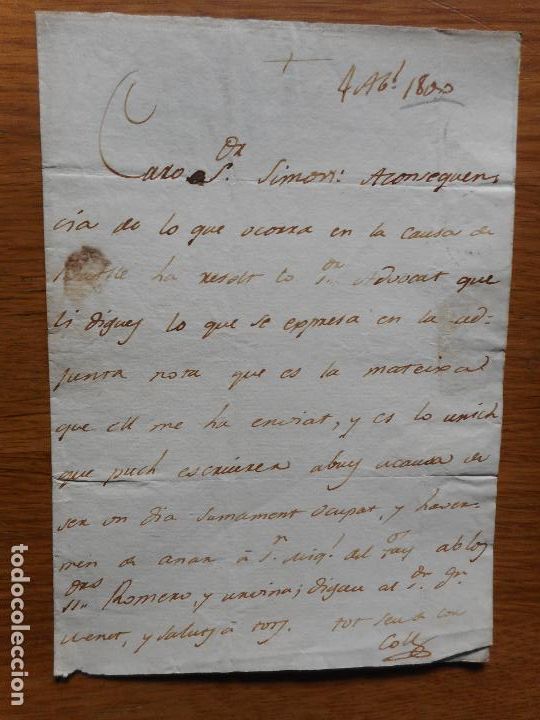 +
4 Ab.l 1800
Caro S.or Simon: Aconsequen,
cia de lo que ocorra en la causa de
ha resolt lo S.or Advocat que
li digues lo que se expresa en la ad-
junta nota que es la mateixa
que ell me ha enviat, y es lo unich
que puch escriurer abuy acausa de
ser un dia sumament ocupat, y haver-
men de anar à S.n Miq.l del ablos
S.rs Romero, y digau al S.or
y saluts à tots. tot seu de cor
Coll
todocoleccion